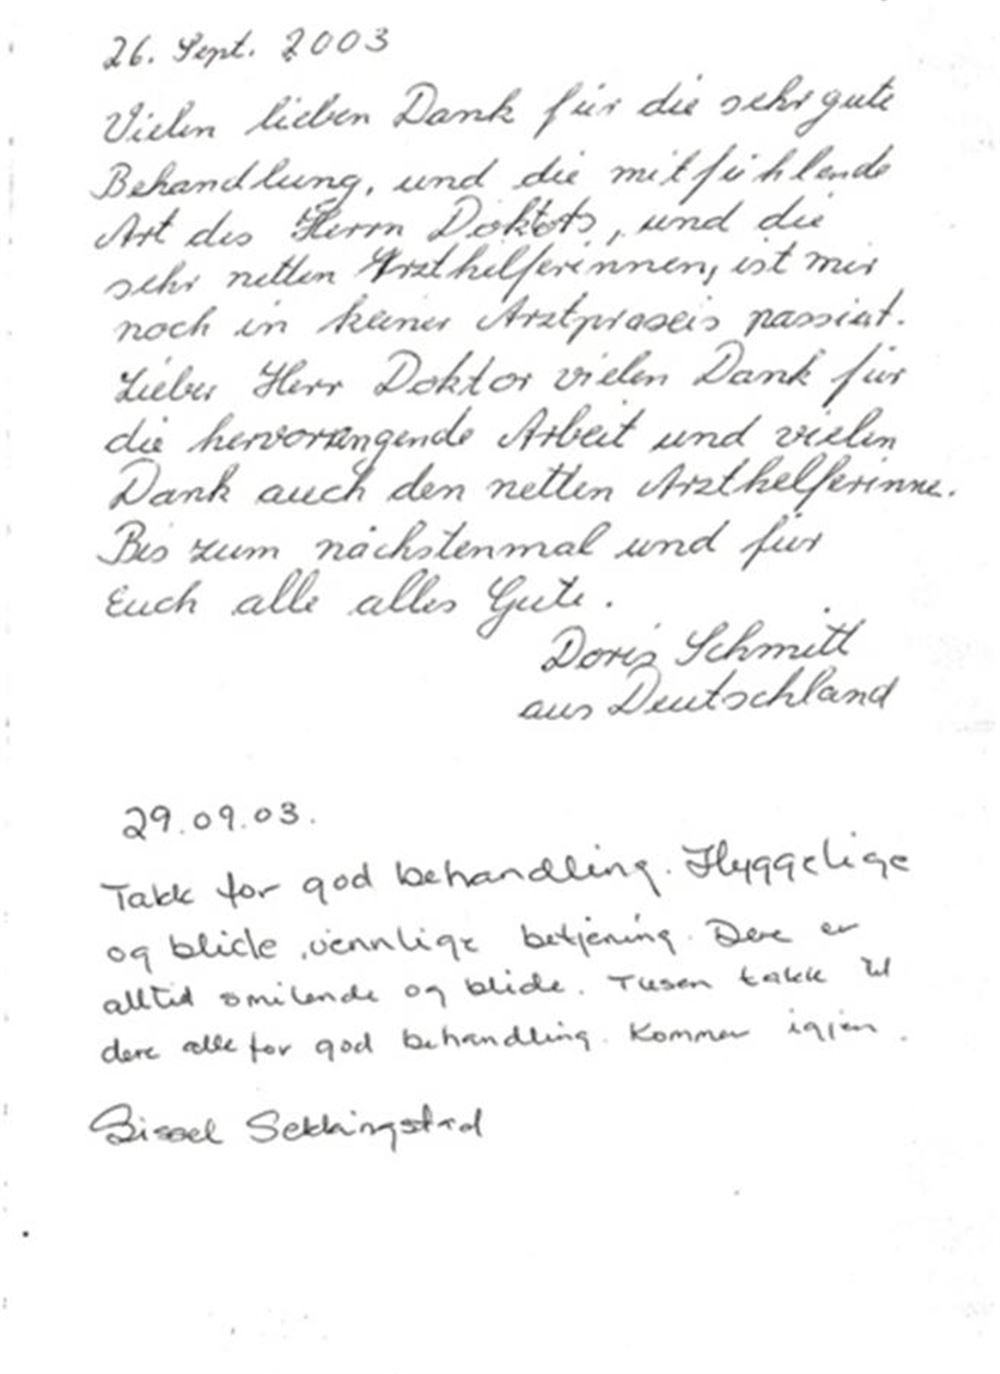 26. Sept. 2003
Vielen lieben Dank für die sehr gute
Behandlung, und die mitfühlende
Art des Herrn Doktors, und die
sehr netten Arzthelferinnen, ist mir
noch in keiner Arztpraxis passiert.
Lieber Herr Doktor vielen Dank für
die hervorrangende Arbeit und vielen
Dank auch den netten Arzthelferinne.
Bis zum nächstenmal und für
Euch alle alles Gute.
Doris Schmitt
aus Deutschland
29.09.03.
Takk for god behandling. Hyggelige
og blide, vennlige betjening. Dere er
alltid smilende og blide. Tusen takk til
dere alle for god behandling. Kommer igjen.
Sissel Sekkingstad